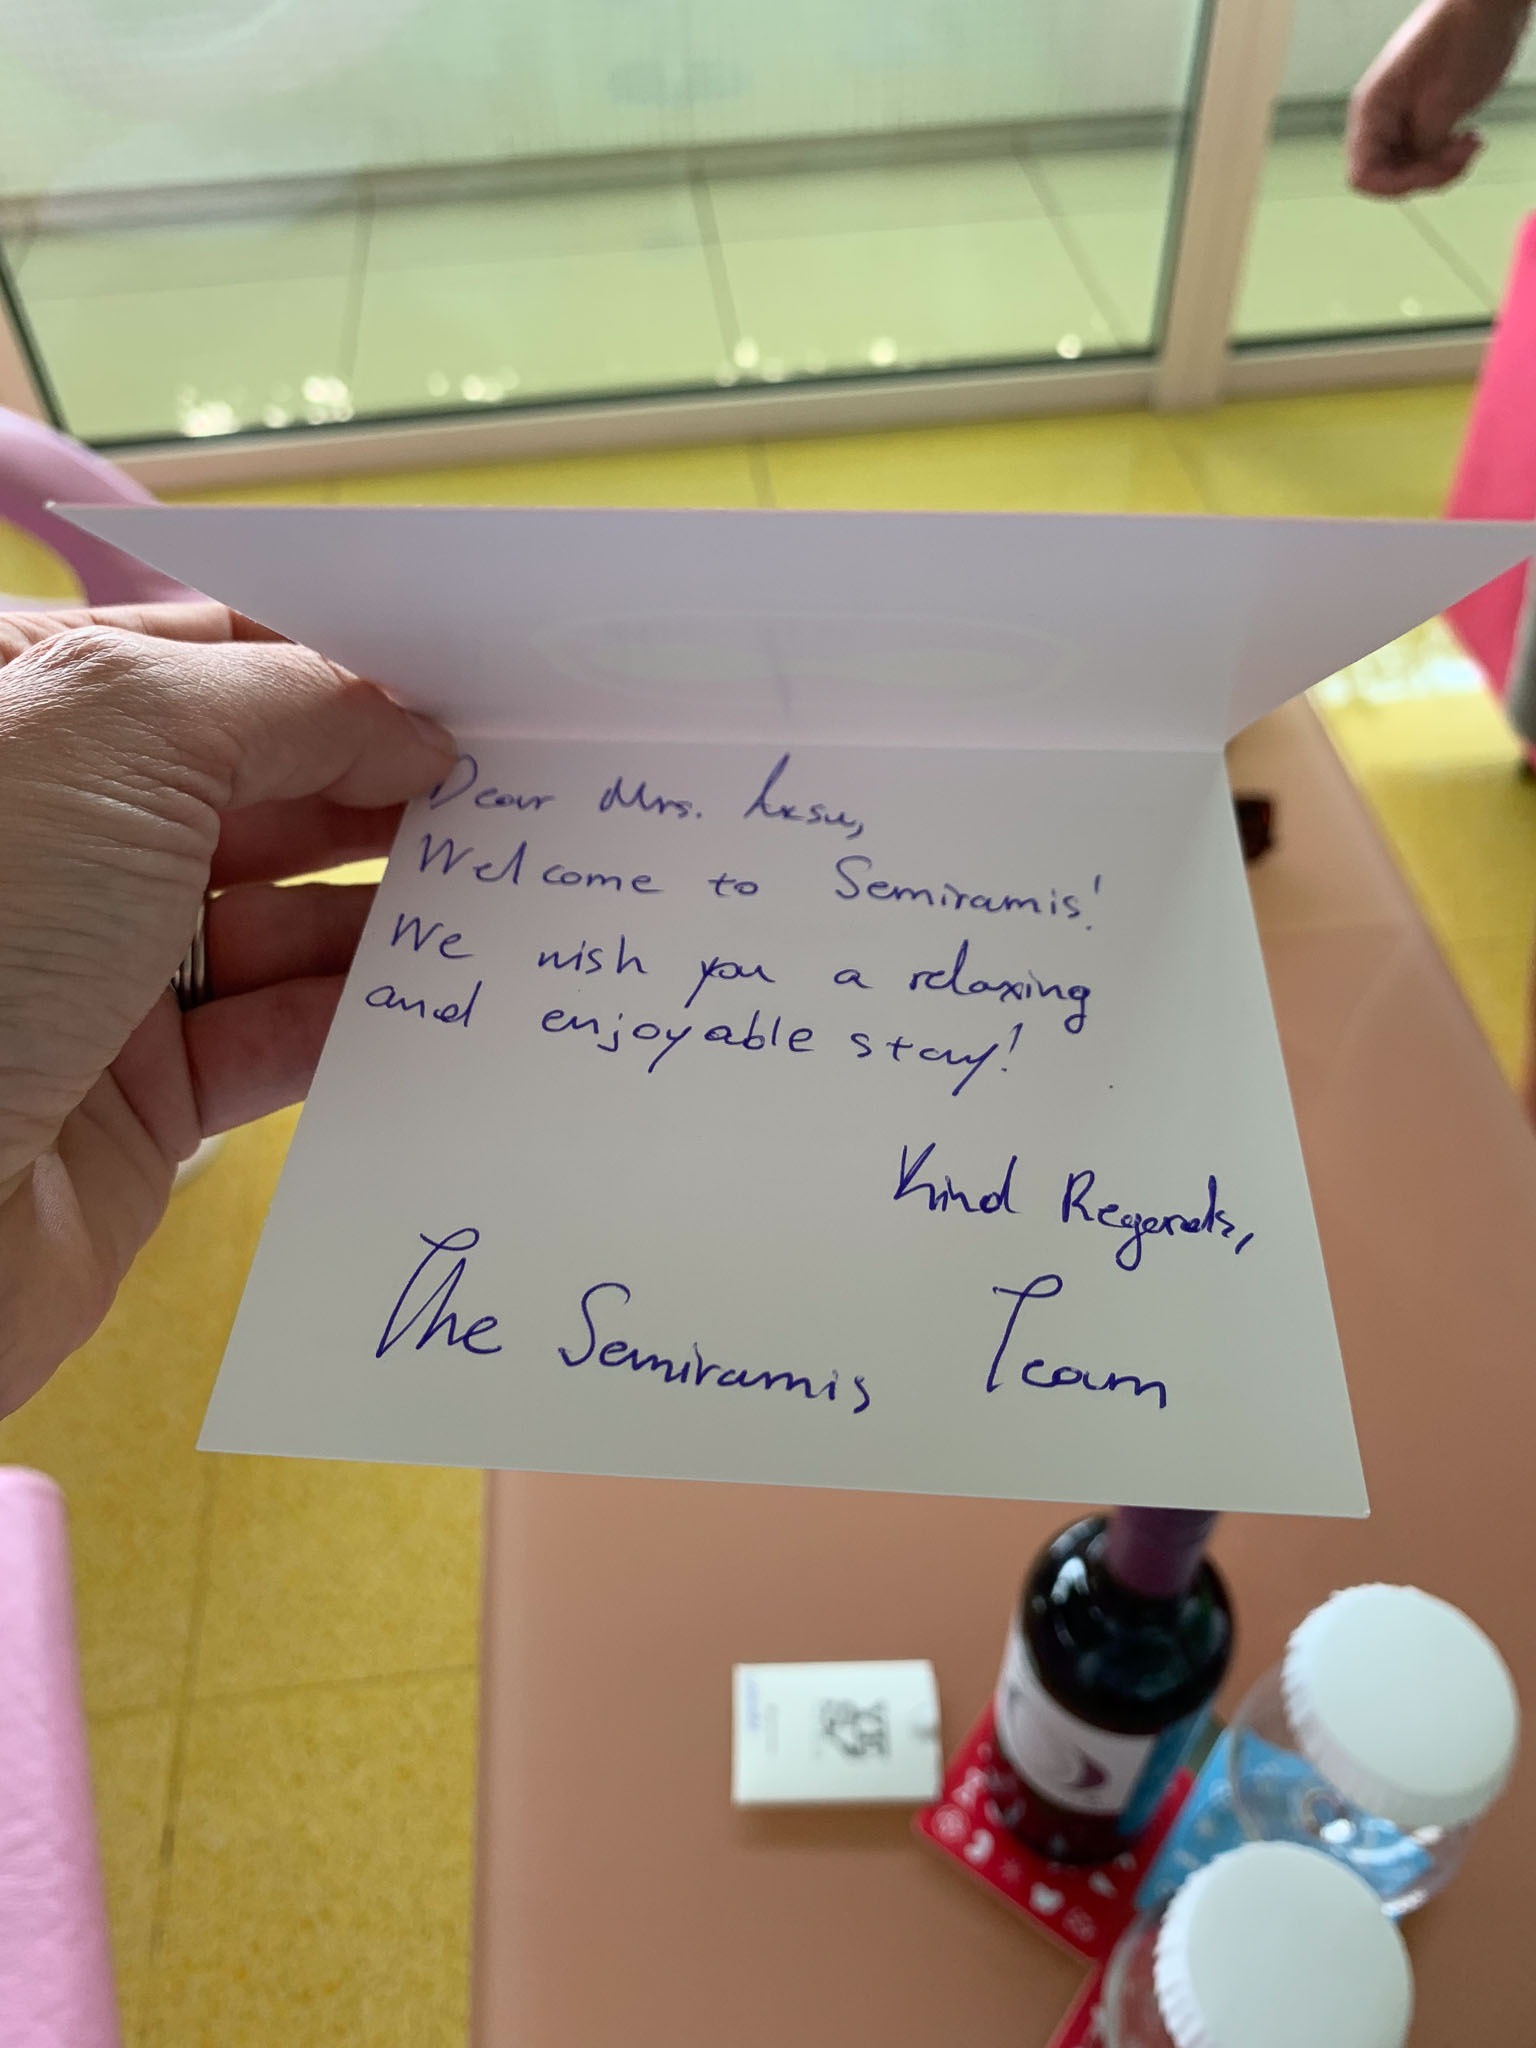 Dear Mrs.
Welcome to Semiramis!
We wish you a relaxing
and enjoyable stay!
Kind Regards,
The Semiramis Team